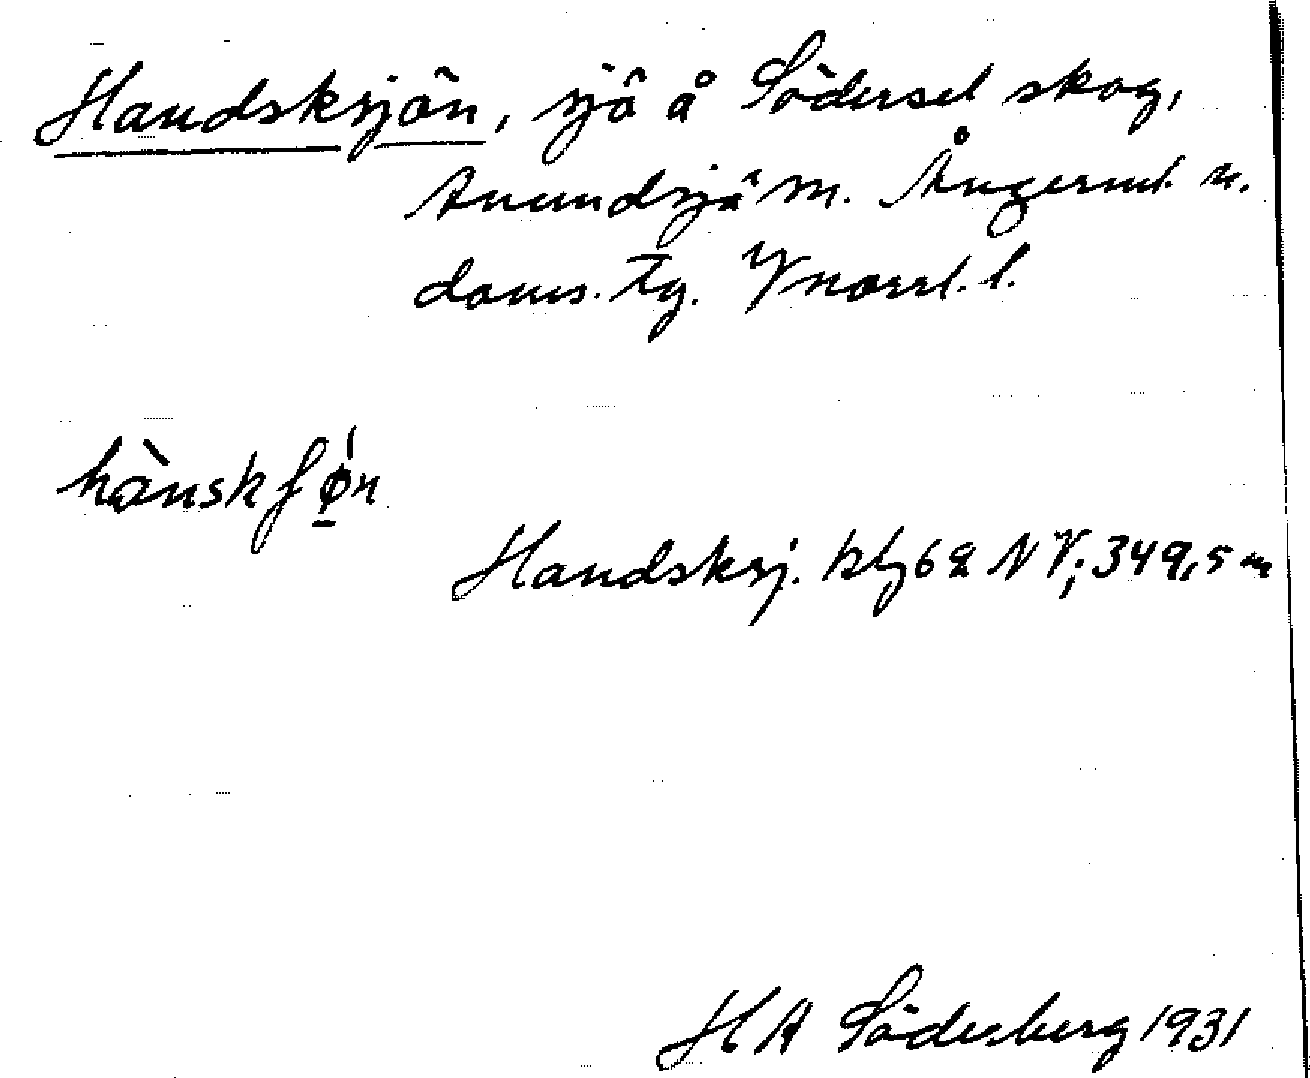 Handsksjön, sjö å Södersel skog,
Anundsjö sn. Ångerml. n.
doms. tg. Vnorrl. l.
hànskʃø̱̀n
Handsksj. blg 62 NV; 349,5 m
HA Söderberg 1931